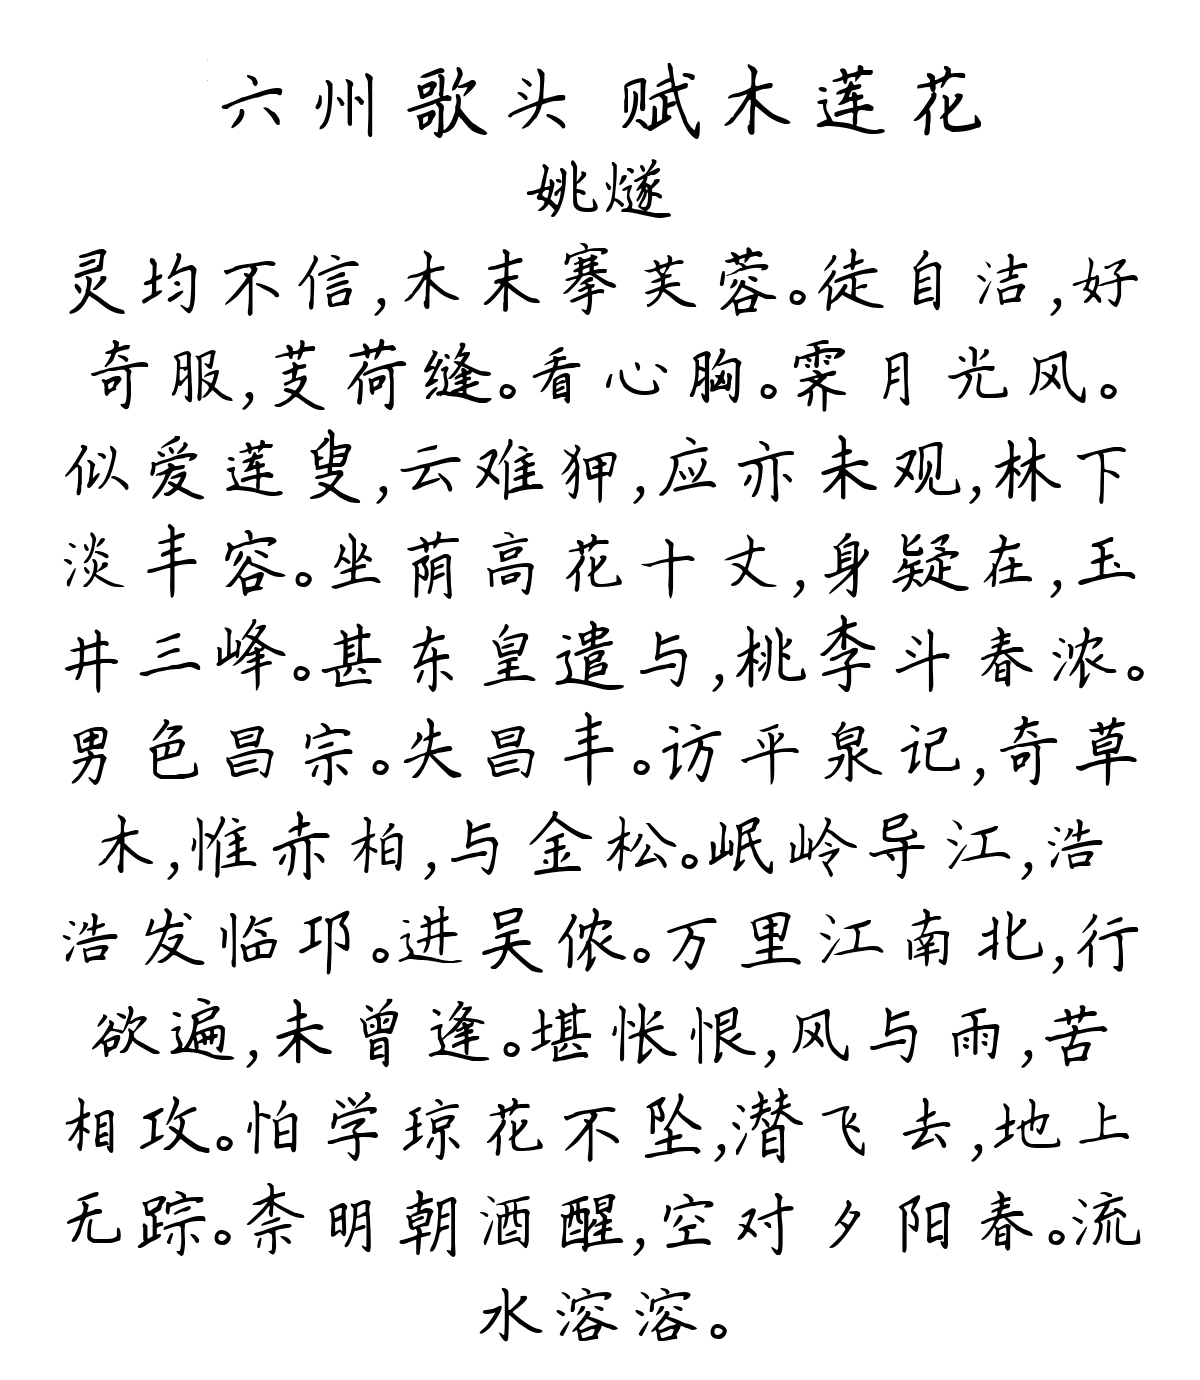 六州歌头 赋木莲花
姚燧
灵均不信,木末搴芙蓉。徒自洁,好
奇服,芰荷缝。看心胸。霁月光风。
似爱莲叟,云难狎,应亦未观,林下
淡丰容。坐荫高花十丈,身疑在,玉
井三峰。甚东皇遣与,桃李斗春浓。
男色昌宗。失昌丰。访平泉记,奇草
木,惟赤柏,与金松。岷岭导江,浩
浩发临邛。进吴侬。万里江南北,行
欲遍,未曾逢。堪怅恨,风与雨,苦
相攻。怕学琼花不坠,潜飞去,地上
无踪。柰明朝酒醒,空对夕阳春。流
水溶溶。